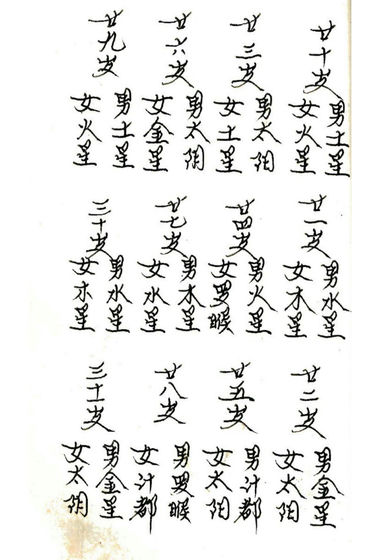 廿十岁
男土星
女火星
廿一岁
男水星
女木星
廿二岁
男金星
女太阴
廿三岁
男太阳
女土星
廿四岁
男火星
女罗睺
廿五岁
男计都
女太阳
廿六岁
男太阴
女金星
廿七岁
男木星
女水星
廿八岁
男罗睺
女计都
廿九岁
男土星
女火星
三十岁
男水星
女木星
三十一岁
男金星
女太阴